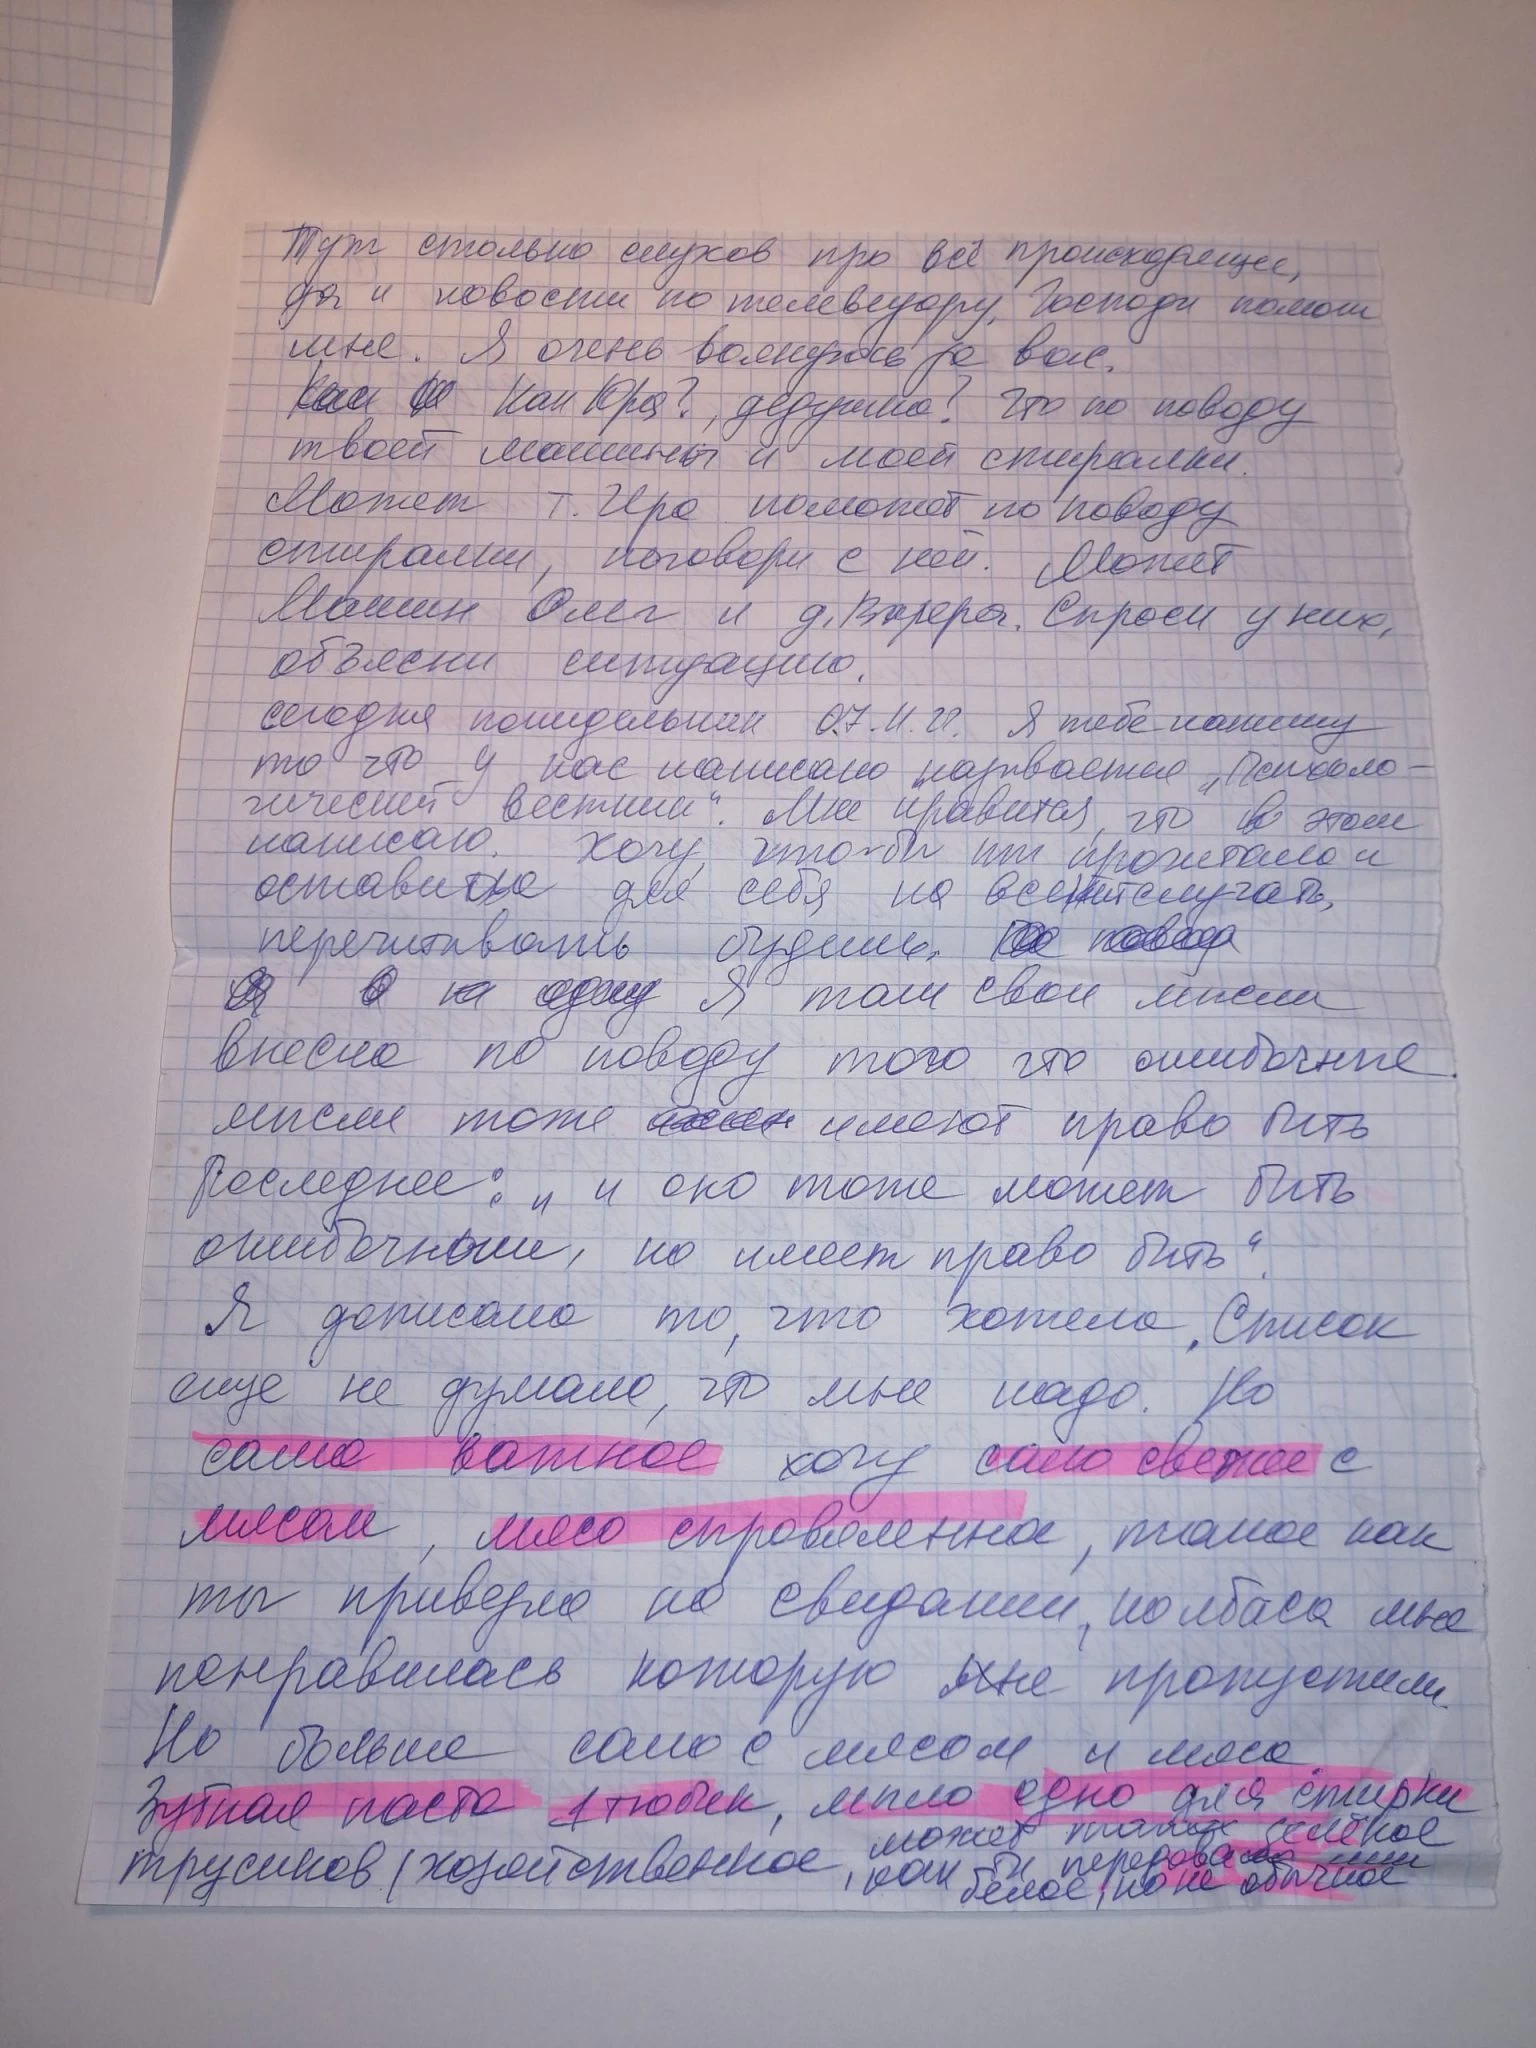 Тут столько слухов про всё происходящее,
да и новости по телевизору, Господи помоги
мне. Я очень волнуюсь за вас.
Как Юра?, дедушка? Что по поводу
твоей машины и моей стиралки.
Может т. Ира поможет по поводу
стиралки, поговори с ней. Может
Машин Олег и д. Валера. Спроси у них,
объясни ситуацию.
сегодня понидельник 07.11.22. Я тебе напишу
то что у нас написано называется „Психоло-
гический вестник“. Мне нравится, что в этом
написано. Хочу, что-бы ты прочитала и
оставила для себя на всякий случай,
перечитывать будешь.
Я там свои мысли
внесла по поводу того что ошибочные
мысли тоже имеют право быть
Последнее: „и оно тоже может быть
ошибочным, но имеет право быть“.
Я дописала то, что хотела. Список
еще не думала, что мне надо. Но
само важное хочу сало свежее с
мясом, мясо справяленное, такое как
ты привезла на свидании, колбаса мне
понравилась которую не пропустили.
Но больше сало с мясом и мясо
Зубная паста 1 тюбик, мыло одно для стирки
трусиков (хозяйственное, может такое зелёное
как бы передавала или
белое, но не обычное